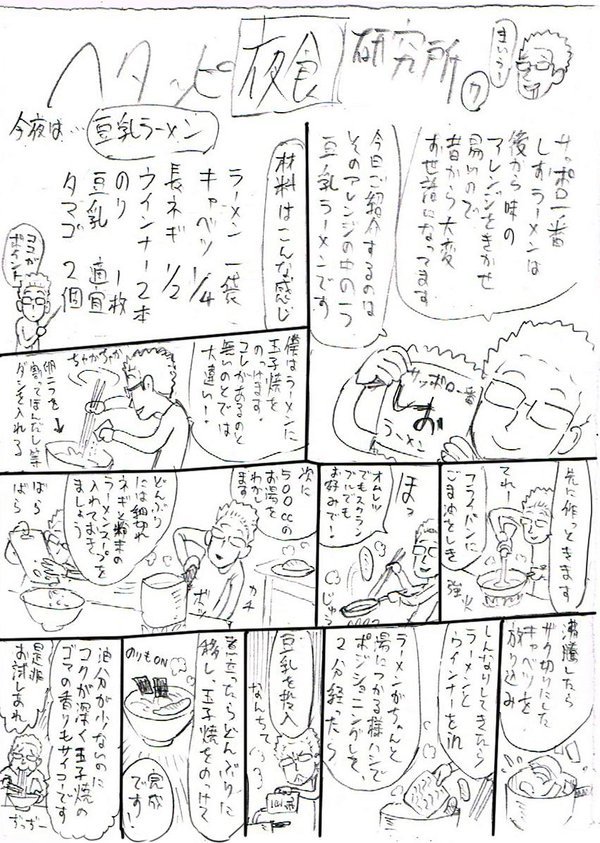 ヘタッピ夜食研究所⑦
まいうー
今夜は…豆乳ラーメン
サッポロ一番
しおラーメンは
後から味の
アレンジをきかせ
易いので
昔から大変
お世話になってます
今日ご紹介するのは
そのアレンジの中の一つ
豆乳ラーメンです
サッポロ一番
しお
ラーメン
材料はこんな感じ
ラーメン 一袋
キャベツ 1/4
長ネギ 1/2
ウインナー 2本
のり 1枚
豆乳 適宜
タマゴ 2個
ココが
ポイント
僕はラーメンに
玉子焼を
のっけます。
コレがあるのと
無いのとでは
大違い!
ちゃかちゃか
卵二つを
割ってほんだし等
ダシを入れる
先に作っときます
てれー
フライパンに
ごま油をしき
強火
ほっ
オムレツ
でもスクラン
ブルでも
お好みで!
じゅう
次に
500ccの
お湯を
わかし
ます
カチ
ボッ
どんぶり
には細切れ
ネギと粉末の
ラーメンスープを
入れておき
ましょう
ぱら
ぱら
沸騰したら
ザク切りにした
キャベツを
放り込み
しんなりしてきたら
ラーメンと
ウインナーをin
ラーメンがちゃんと
湯につかる様ハシで
ポジショニングして
2分経ったら
豆乳を投入
なんちて
煮立ったらどんぶりに
移し、玉子焼をのっけて
のりもON
完成
です!
油分が少ないのに
コクが深く玉子焼の
ゴマの香りもサイコーです
是非
お試しあれ
ずっずー